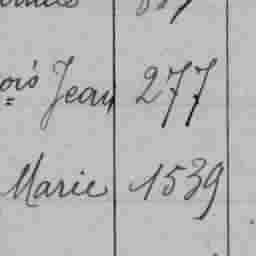 ois Jean 277
Marie 1539